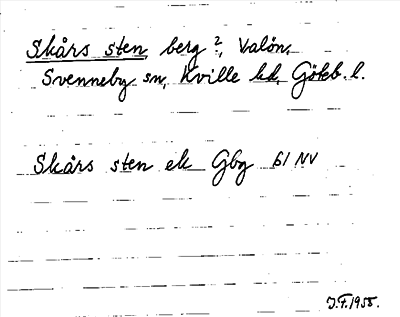 Skårs sten, berg ?, Valön,
Svenneby sn, Kville hd, Göteb. l.
Skårs sten ek Gbg 61 NV
J.F. 1958.